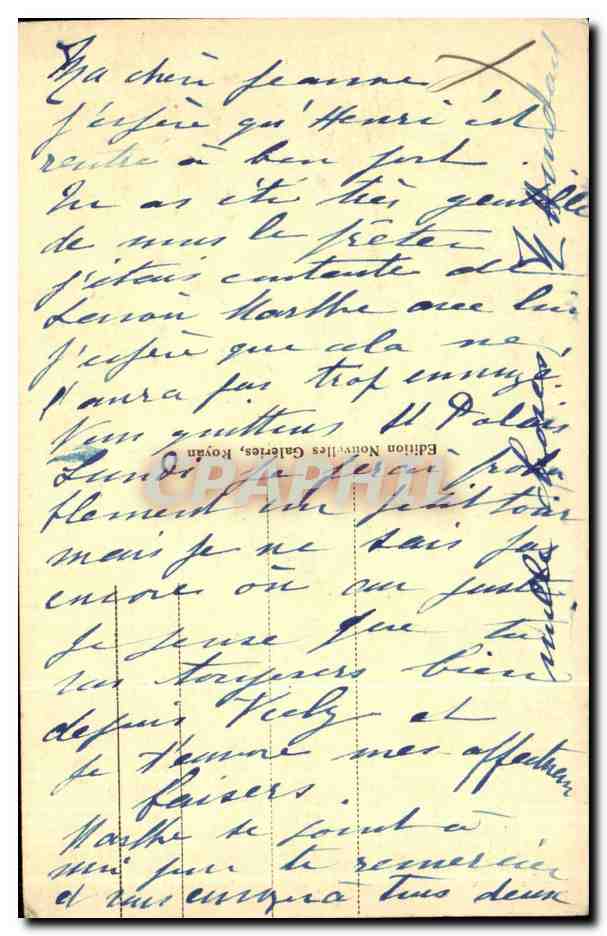 Ma chère Jeanne
j'espère qu'Henri est
rentré à bon port.
Tu as été très gentille
de nous le prêter
j'étais contente de
savoir Marthe avec lui
j'espère que cela ne
t'aura pas trop ennuyé.
Nous quittons St Palais
Lundi je ferai proba
blement un petit tour
mais je ne sais pas
encore où au juste
je pense que tu
vas toujours bien
depuis Vichy et
je t'envoie mes affectueux
baisers.
Marthe se joint à
moi pour te remercier
et vous envoyer à tous deux
mille baisers
Edition Nouvelles Galeries, Royan
CPAPHIL